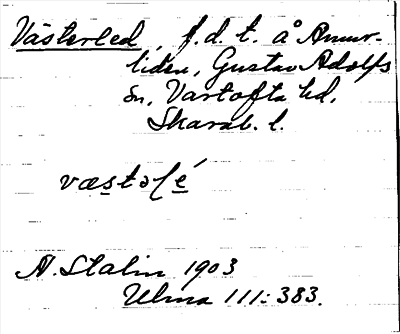 Västerled, f.d. t. å Amur-
liden, Gustav Adolfs
sn, Vartofta hd,
Skarab. l.
væstəlé
N. Stalin 1903
Ulma 111:383.